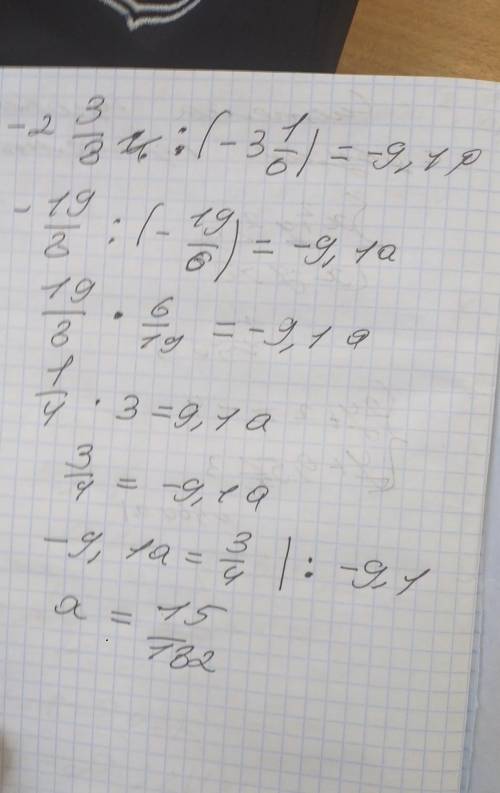 -2 3/8 : (-3 1/6) = -9,1
-19/8 : (-19/6) = -9,1a
19/8 · 6/19 = -9,1a
1/4 · 3 = 9,1a
3/4 = -9,1a
-9,1a = 3/4 | : -9,1
a = 15/182